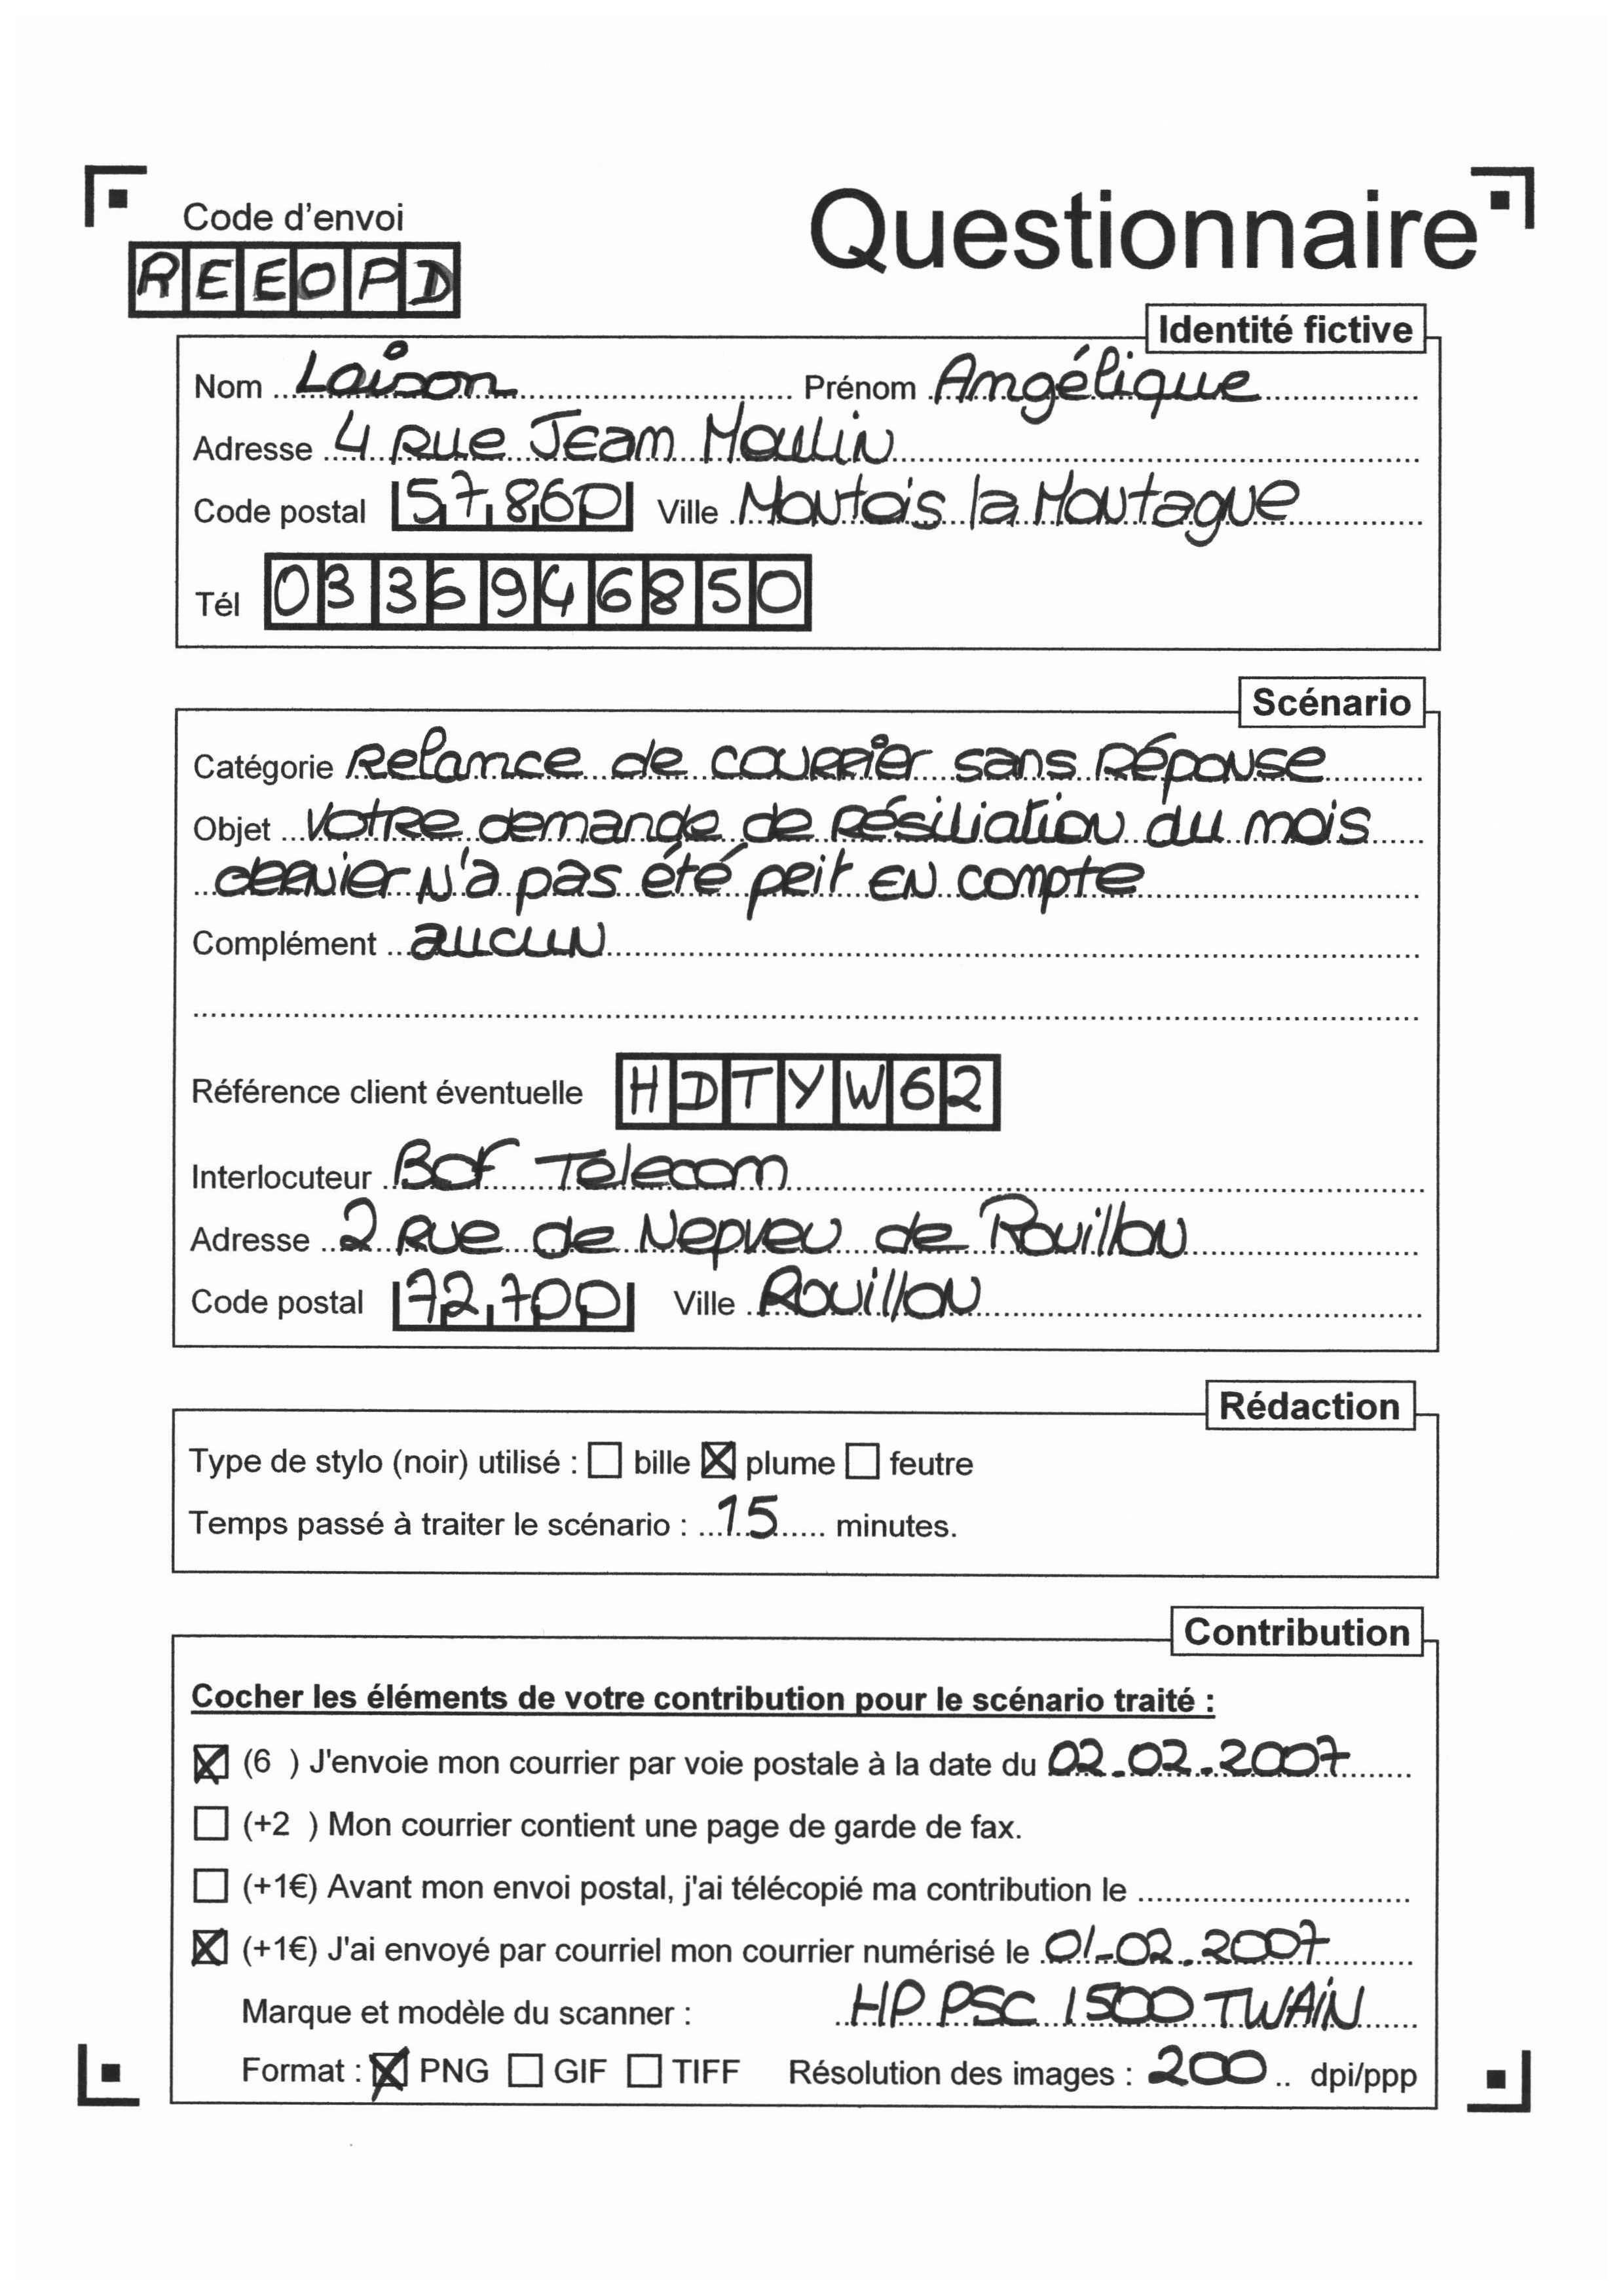 Code d'envoi
Questionnaire
REEOPD
Identité fictive
Nom Loison Prénom Angélique
Adresse 4 Rue Jean Moulin
Code postal 57860 Ville Montois la Montagne
Tél 0336946850
Scénario
Catégorie Relance de courrier sans Réponse
Objet Votre demande de Résiliation du mois
dernier N'a pas été peit EN compte
Complément aucun
Référence client éventuelle HDTYW62
Interlocuteur Bof Telecom
Adresse 2 Rue de Nepveu de Rouillon
Code postal 72700 Ville Rouillon
Rédaction
Type de stylo (noir) utilisé : bille plume feutre
Temps passé à traiter le scénario : 15 minutes.
Contribution
Cocher les éléments de votre contribution pour le scénario traité :
(6 ) J'envoie mon courrier par voie postale à la date du 02.02.2007
(+2 ) Mon courrier contient une page de garde de fax.
(+1€) Avant mon envoi postal, j'ai télécopié ma contribution le
(+1€) J'ai envoyé par courriel mon courrier numérisé le 01-02.2007
Marque et modèle du scanner : HP PSC 1500 TWAIN
Format : PNG GIF TIFF Résolution des images : 200 dpi/ppp